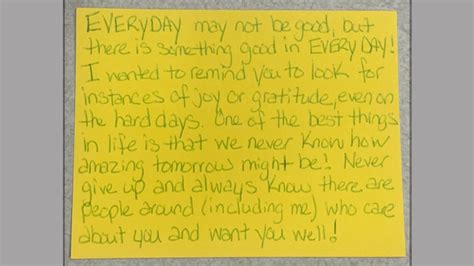 EVERYDAY may not be good, but
there is something good in EVERY DAY!
I wanted to remind you to look for
instances of joy or gratitude, even on
the hard days. One of the best things
in life is that we never know how
amazing tomorrow might be! Never
give up and always know there are
people around (including me) who care
about you and want you well!